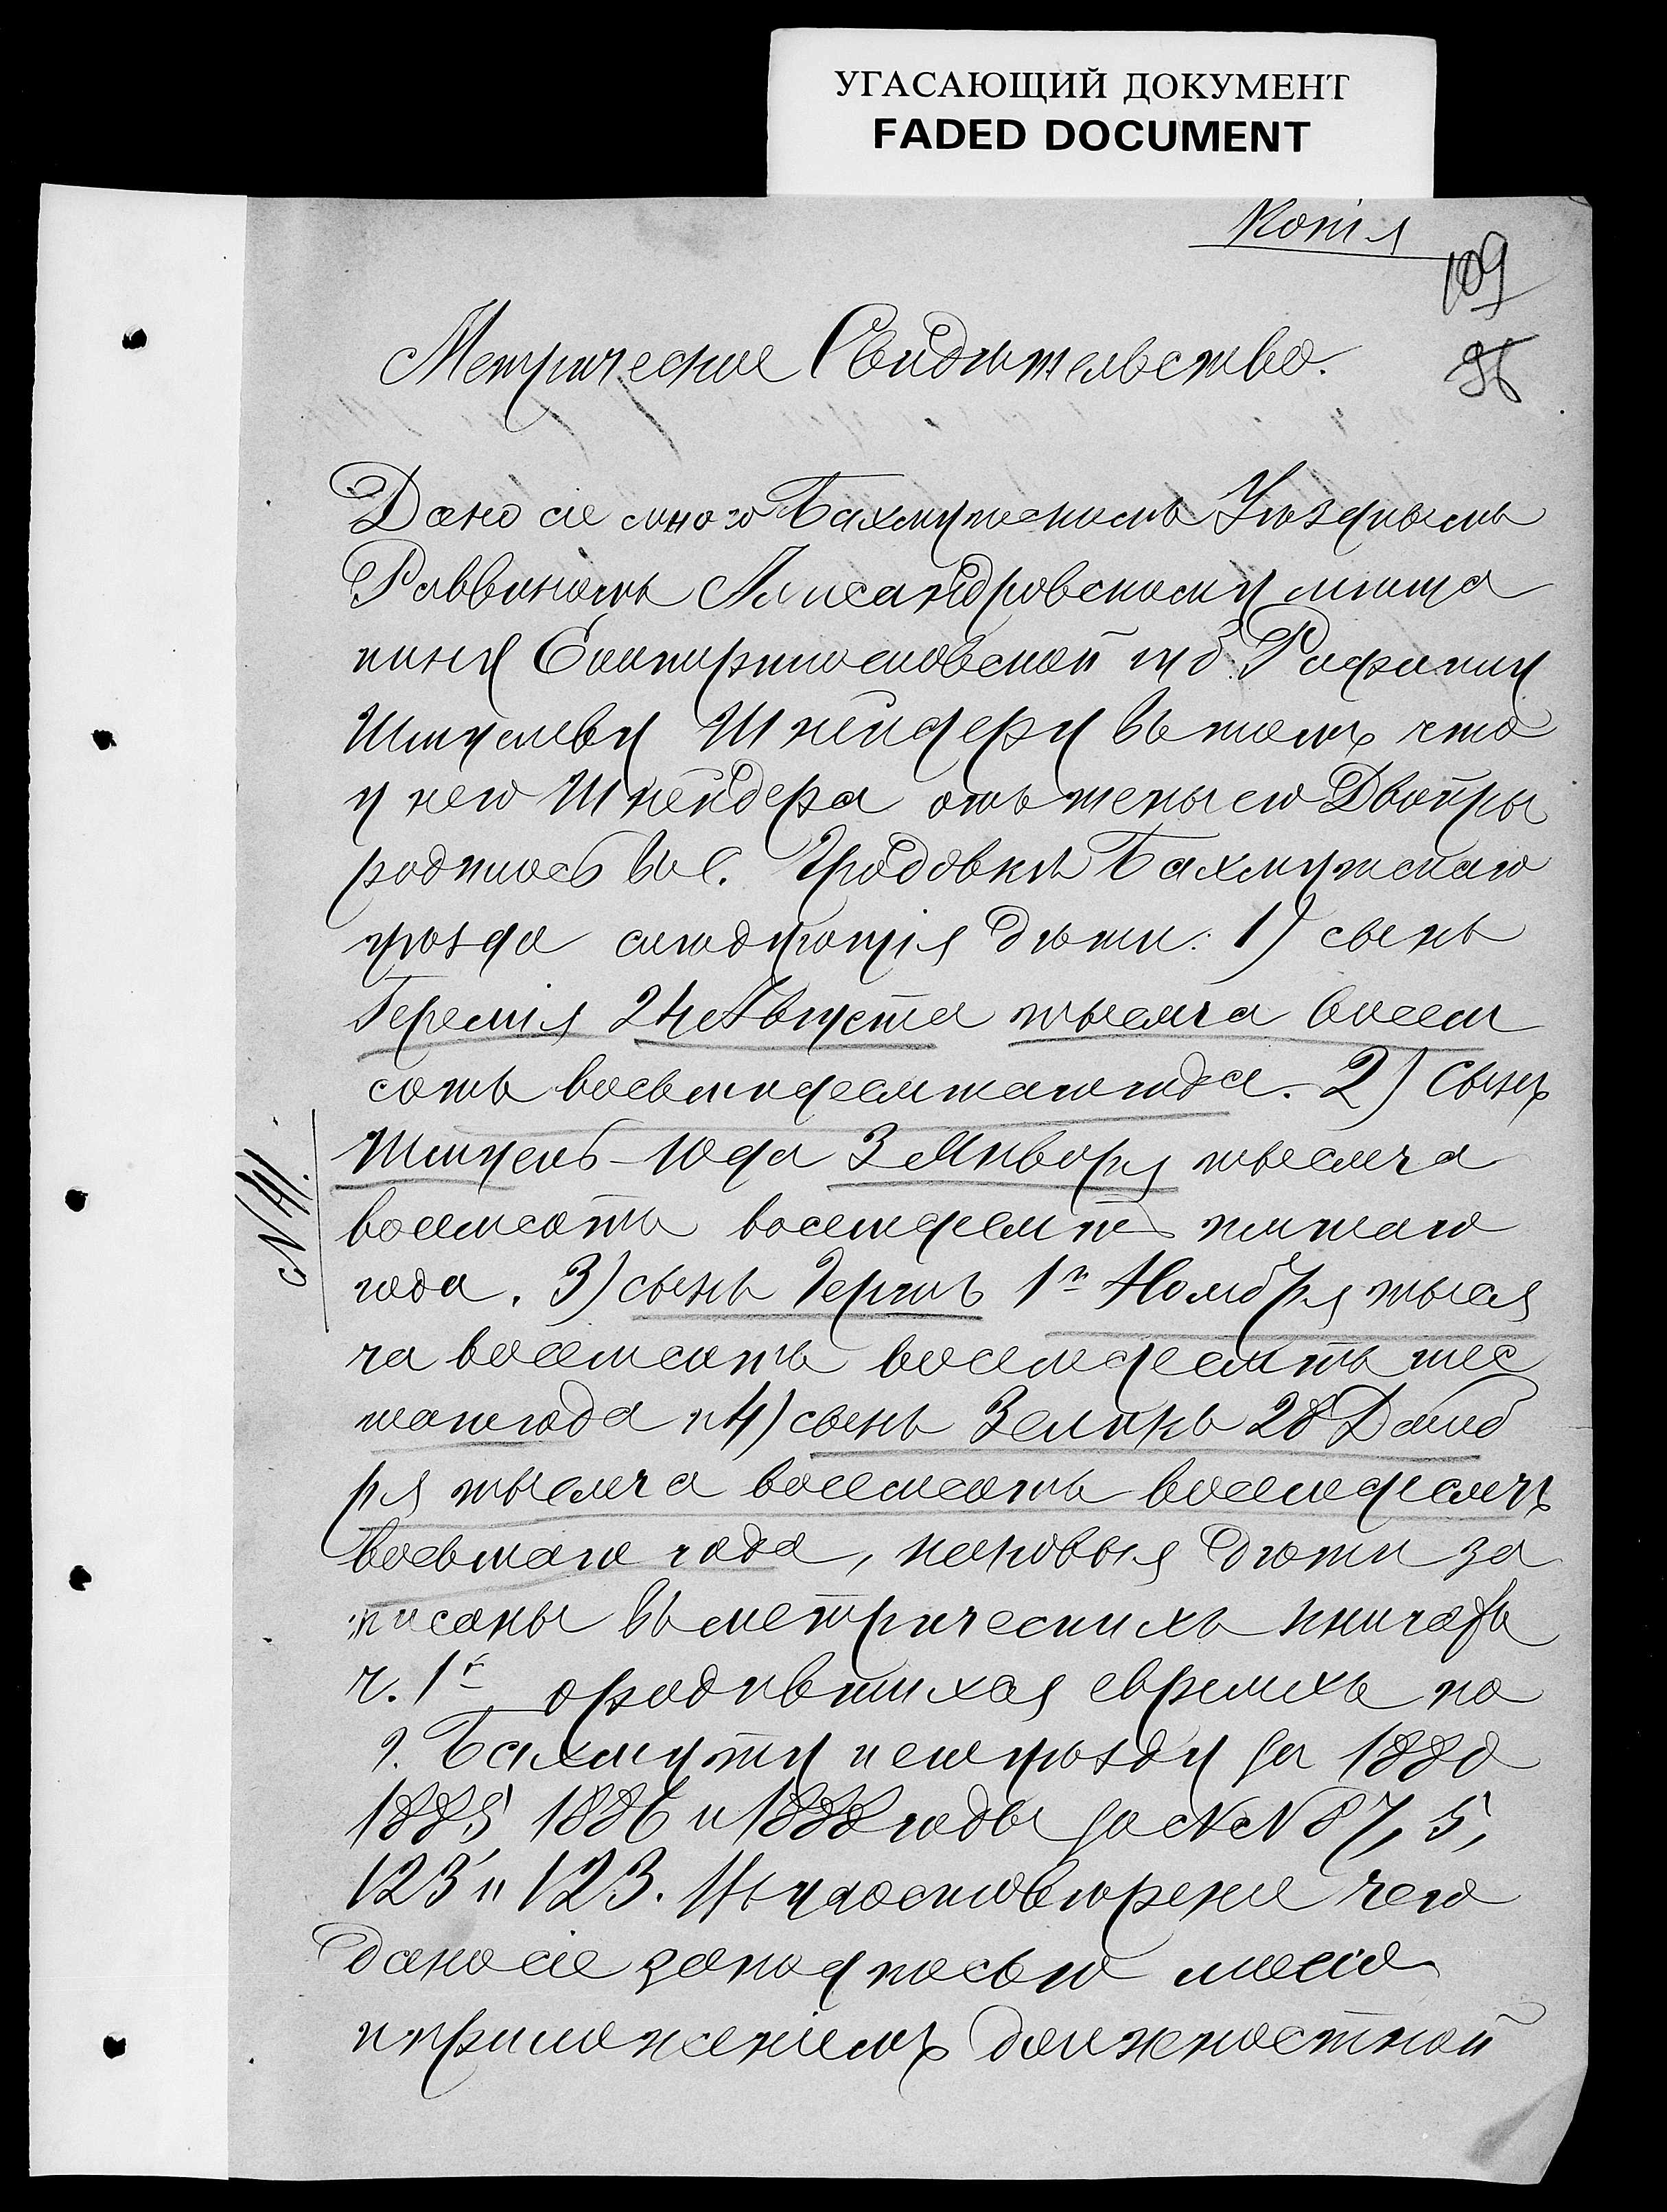 УГАСАЮЩИЙ ДОКУМЕНТ
FADED DOCUMENT
Копія
109
96
Метрическое Свидѣтельство.
Дано сіе мною Бахмутскимъ Уѣзднымъ
Раввиномъ Александровскому мѣща
нину Екатеринославской губ. Рафаилу
Шмулеву Шнейдеру въ томъ что
у него Шнейдера отъ жены его Двойры
родилось въ с. Гродовкѣ Бахмутскаго
уѣзда слѣдующія дѣти: 1) сынъ
Іеремія 24 Августа тысяча восем
сотъ восьмидесятаго года. 2) Сынъ
Шмуель-Юда 3 Января тысяча
восемсотъ восемдесятъ пятаго
года. 3) сынъ Гершъ 1го Ноября тыся
ча восемсотъ восемдесятъ шес
таго года и 4) сынъ Зеликъ 28 Декаб
ря тысяча восемсотъ восемдесятъ
восьмаго года, каковыя дѣти за
писаны въ метрическихъ книгахъ
ч. 1й о родившихся евреяхъ по
г. Бахмуту и его уѣзду за 1880
1885, 1886 и 1888 годы за №№ 87, 5,
123 и 123. Въ удостовѣреніе чего
дано сіе за подписью моею
и приложеніемъ должностной
№ 41.